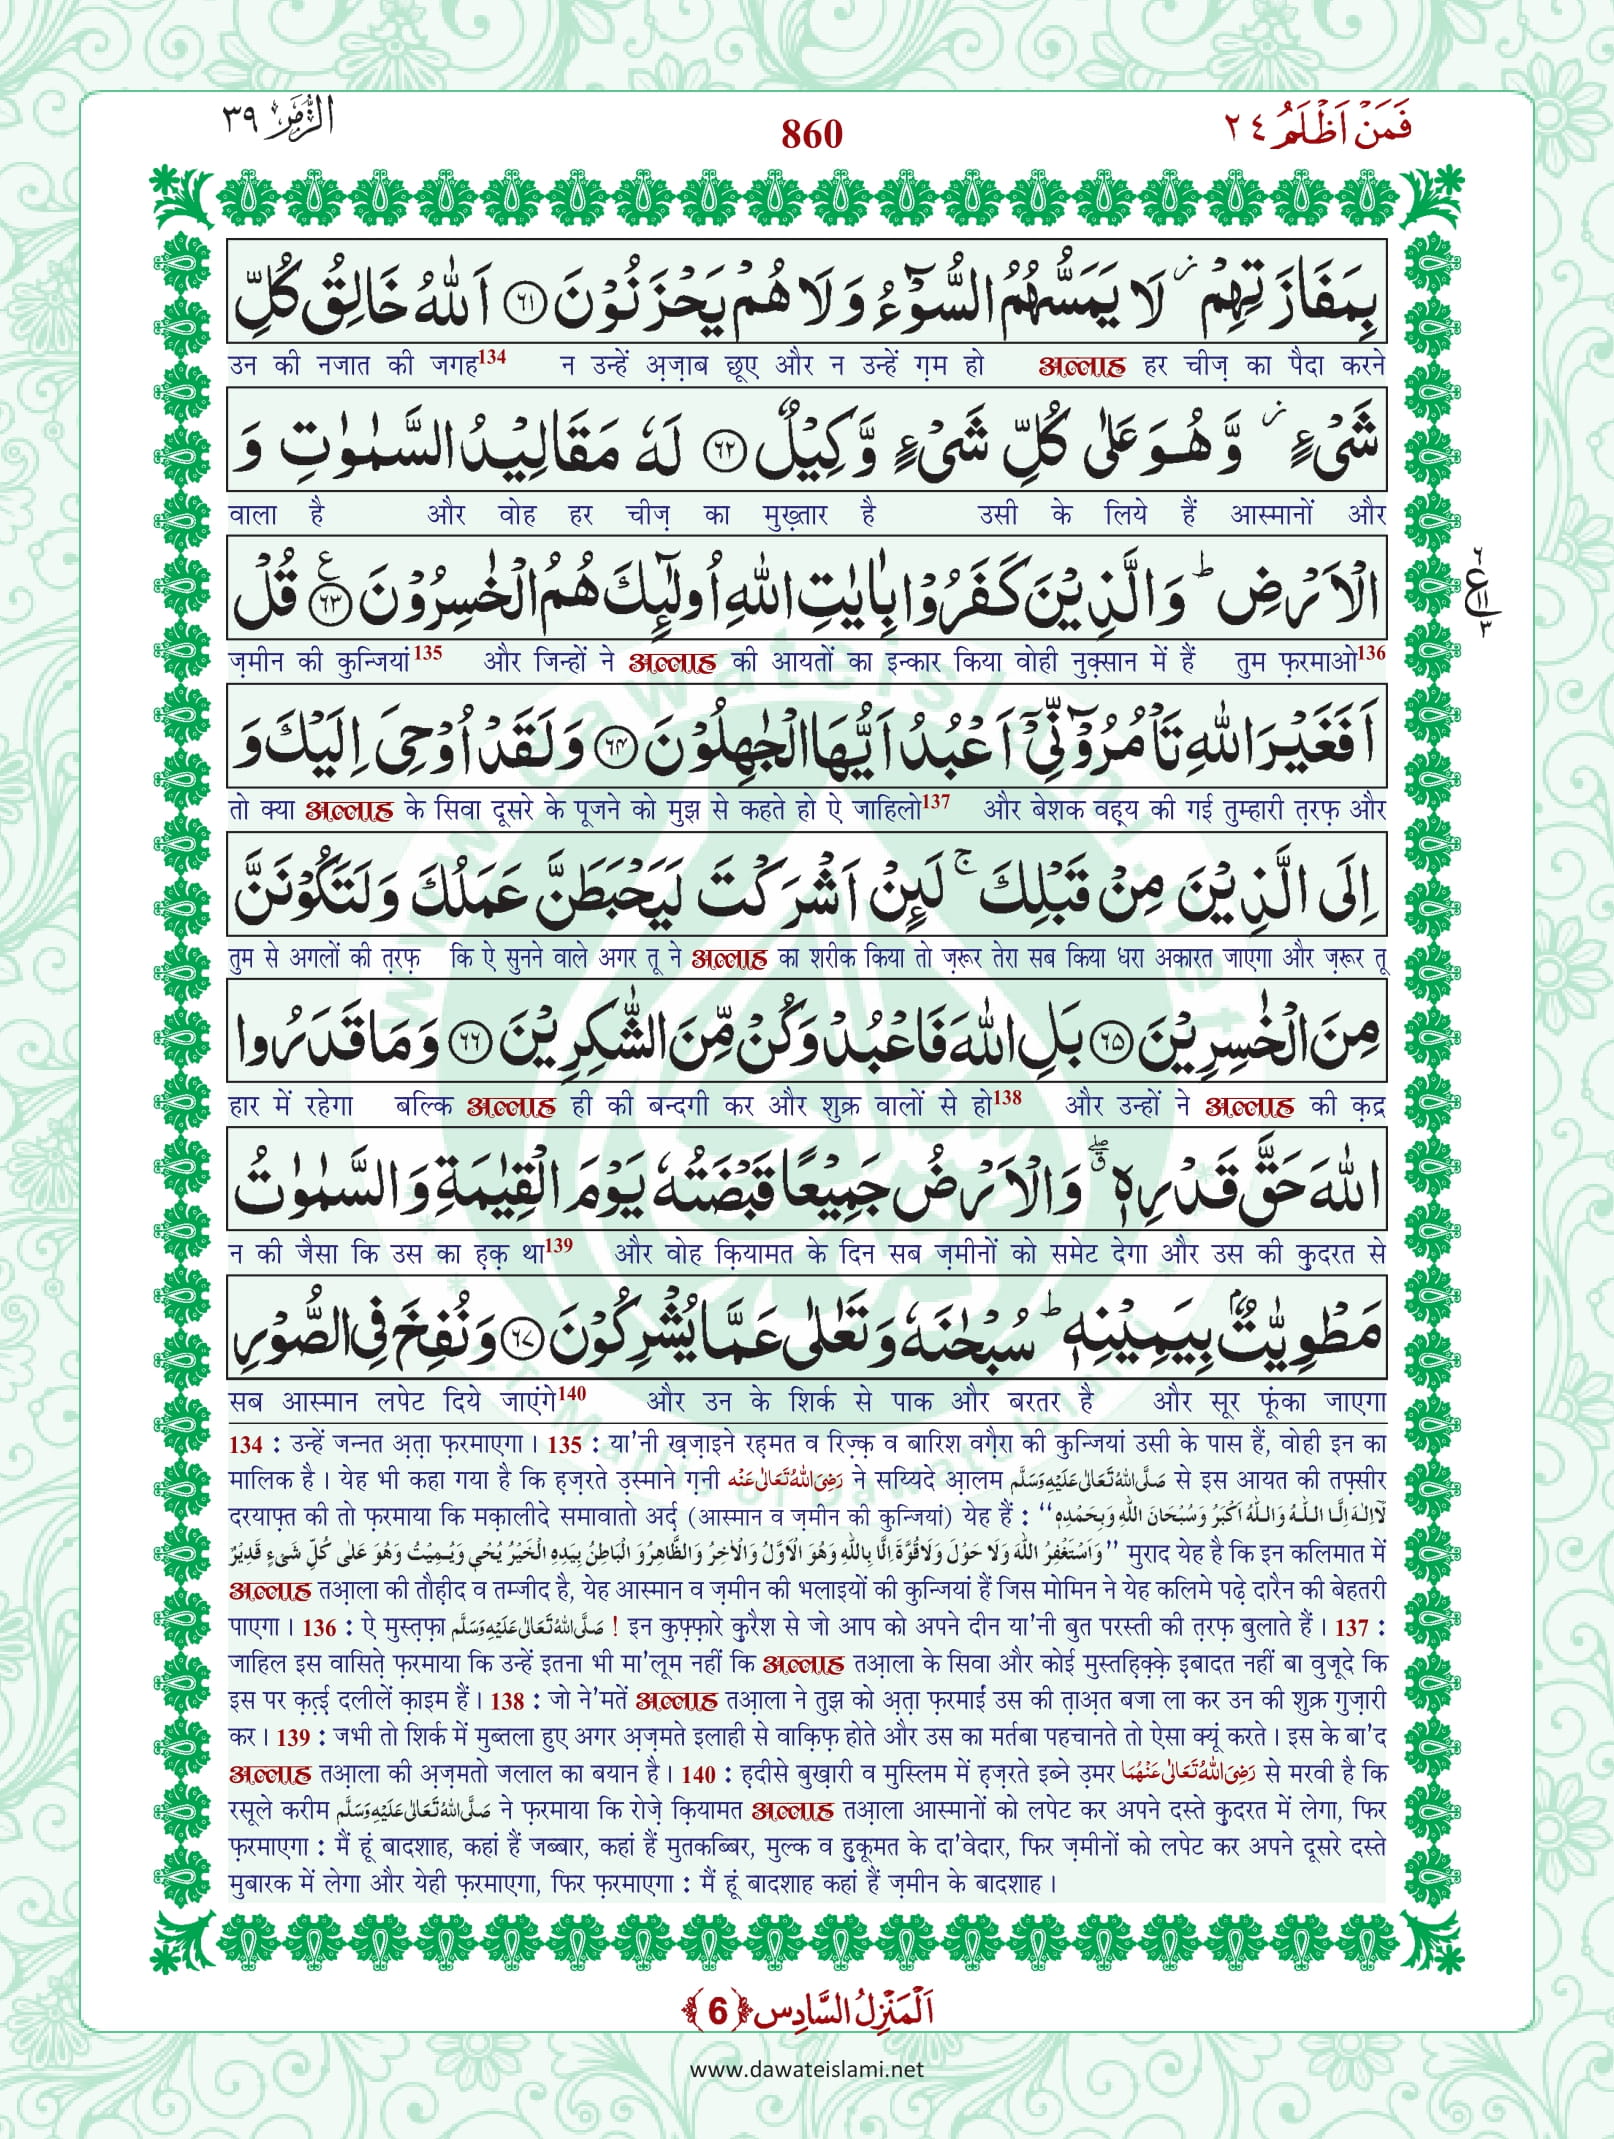 الزُّمَر ٣٩
860
فَمَنْ اَظْلَمُ ٢٤
بِمَفَازَتِهِمْ ؗ لَا یَمَسُّهُمُ السُّوْٓءُ وَ لَا هُمْ یَحْزَنُوْنَ ﴿۶۱﴾ اَللّٰهُ خَالِقُ كُلِّ
उन की नजात की जगह134 न उन्हें अ़ज़ाब छूए और न उन्हें ग़म हो अल्लाह हर चीज़ का पैदा करने
شَیْءٍ ؗ وَّ هُوَ عَلٰى كُلِّ شَیْءٍ وَّكِیْلٌ ﴿۶۲﴾ لَهٗ مَقَالِیْدُ السَّمٰوٰتِ وَ
वाला है और वोह हर चीज़ का मुख़्तार है उसी के लिये हैं आस्मानों और
الْاَرْضِ ؕ وَ الَّذِیْنَ كَفَرُوْا بِاٰیٰتِ اللّٰهِ اُولٰٓىٕكَ هُمُ الْخٰسِرُوْنَ ﴿۶۳﴾ ع قُلْ
٦ ع ١١ ٣
ज़मीन की कुन्जियां135 और जिन्हों ने अल्लाह की आयतों का इन्कार किया वोही नुक़्सान में हैं तुम फ़रमाओ136
اَفَغَیْرَ اللّٰهِ تَاْمُرُوْٓنِّیْۤ اَعْبُدُ اَیُّهَا الْجٰهِلُوْنَ ﴿۶۴﴾ وَ لَقَدْ اُوْحِیَ اِلَیْكَ وَ
तो क्या अल्लाह के सिवा दूसरे के पूजने को मुझ से कहते हो ऐ जाहिलो137 और बेशक वह़्य की गई तुम्हारी त़रफ़ और
اِلَى الَّذِیْنَ مِنْ قَبْلِكَ ۚ لَىِٕنْ اَشْرَكْتَ لَیَحْبَطَنَّ عَمَلُكَ وَ لَتَكُوْنَنَّ
तुम से अगलों की त़रफ़ कि ऐ सुनने वाले अगर तू ने अल्लाह का शरीक किया तो ज़रूर तेरा सब किया धरा अकारत जाएगा और ज़रूर तू
مِنَ الْخٰسِرِیْنَ ﴿۶۵﴾ بَلِ اللّٰهَ فَاعْبُدْ وَ كُنْ مِّنَ الشّٰكِرِیْنَ ﴿۶۶﴾ وَ مَا قَدَرُوا
हार में रहेगा बल्कि अल्लाह ही की बन्दगी कर और शुक्र वालों से हो138 और उन्हों ने अल्लाह की क़द्र
اللّٰهَ حَقَّ قَدْرِهٖ ۖۗ وَ الْاَرْضُ جَمِیْعًا قَبْضَتُهٗ یَوْمَ الْقِیٰمَةِ وَ السَّمٰوٰتُ
न की जैसा कि उस का ह़क़ था139 और वोह क़ियामत के दिन सब ज़मीनों को समेट देगा और उस की क़ुदरत से
مَطْوِیّٰتٌۢ بِیَمِیْنِهٖ ؕ سُبْحٰنَهٗ وَ تَعٰلٰى عَمَّا یُشْرِكُوْنَ ﴿۶۷﴾ وَ نُفِخَ فِی الصُّوْرِ
सब आस्मान लपेट दिये जाएंगे140 और उन के शिर्क से पाक और बरतर है और सूर फूंका जाएगा
134 : उन्हें जन्नत अ़त़ा फ़रमाएगा। 135 : या'नी ख़ज़ाइने रह़मत व रिज़्क़ व बारिश वग़ैरा की कुन्जियां उसी के पास हैं, वोही इन का
मालिक है। येह भी कहा गया है कि ह़ज़रते उ़स्माने ग़नी رَضِیَ اللّٰهُ تَعَالٰی عَنْه ने सय्यिदे आ़लम صَلَّی اللّٰهُ تَعَالٰی عَلَیْهِ وَسَلَّم से इस आयत की तफ़्सीर
दरयाफ़्त की तो फ़रमाया कि मक़ालीदे समावातो अर्द़ (आस्मान व ज़मीन की कुन्जियां) येह हैं : ‘‘لَآ اِلٰهَ اِلَّا اللّٰهُ وَاللّٰهُ اَكْبَرُ وَسُبْحَانَ اللّٰهِ وَبِحَمْدِهٖ
وَاَسْتَغْفِرُ اللّٰهَ وَلَا حَوْلَ وَلَا قُوَّةَ اِلَّا بِاللّٰهِ وَهُوَ الْاَوَّلُ وَالْاٰخِرُ وَالظَّاهِرُ وَ الْبَاطِنُ بِیَدِهِ الْخَیْرُ یُحْیٖ وَیُمِیْتُ وَهُوَ عَلٰی كُلِّ شَیْءٍ قَدِیْرٌ’’ मुराद येह है कि इन कलिमात में
अल्लाह तआ़ला की तौह़ीद व तम्जीद है, येह आस्मान व ज़मीन की भलाइयों की कुन्जियां हैं जिस मोमिन ने येह कलिमे पढ़े दारैन की बेहतरी
पाएगा। 136 : ऐ मुस्त़फ़ा صَلَّی اللّٰهُ تَعَالٰی عَلَیْهِ وَسَلَّم ! इन कुफ़्फ़ारे क़ुरैश से जो आप को अपने दीन या'नी बुत परस्ती की त़रफ़ बुलाते हैं। 137 :
जाहिल इस वासित़े फ़रमाया कि उन्हें इतना भी मा'लूम नहीं कि अल्लाह तआ़ला के सिवा और कोई मुस्तह़िक़्क़े इ़बादत नहीं बा वुजूदे कि
इस पर क़त़्ई़ दलीलें क़ाइम हैं। 138 : जो ने'मतें अल्लाह तआ़ला ने तुझ को अ़त़ा फ़रमाईं उस की त़ाअ़त बजा ला कर उन की शुक्र गुज़ारी
कर। 139 : जभी तो शिर्क में मुब्तला हुए अगर अ़ज़मते इलाही से वाक़िफ़ होते और उस का मर्तबा पहचानते तो ऐसा क्यूं करते। इस के बा'द
अल्लाह तआ़ला की अ़ज़मतो जलाल का बयान है। 140 : ह़दीसे बुख़ारी व मुस्लिम में ह़ज़रते इब्ने उ़मर رَضِیَ اللّٰهُ تَعَالٰی عَنْهُمَا से मरवी है कि
रसूले करीम صَلَّی اللّٰهُ تَعَالٰی عَلَیْهِ وَسَلَّم ने फ़रमाया कि रोज़े क़ियामत अल्लाह तआ़ला आस्मानों को लपेट कर अपने दस्ते क़ुदरत में लेगा, फिर
फ़रमाएगा : मैं हूं बादशाह, कहां हैं जब्बार, कहां हैं मुतकब्बिर, मुल्क व ह़ुकूमत के दा'वेदार, फिर ज़मीनों को लपेट कर अपने दूसरे दस्ते
मुबारक में लेगा और येही फ़रमाएगा, फिर फ़रमाएगा : मैं हूं बादशाह कहां हैं ज़मीन के बादशाह।
اَلْمَنْزِلُ السَّادِس ﴿6﴾
www.dawateislami.net